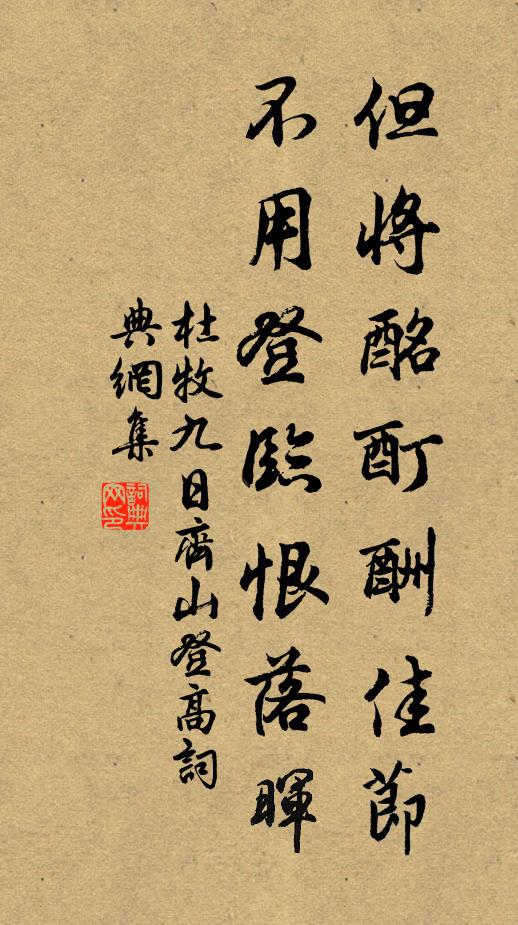 但將酩酊酬佳節
不用登臨恨落暉
杜牧九日齊山登高詞
典網集
詞典網印